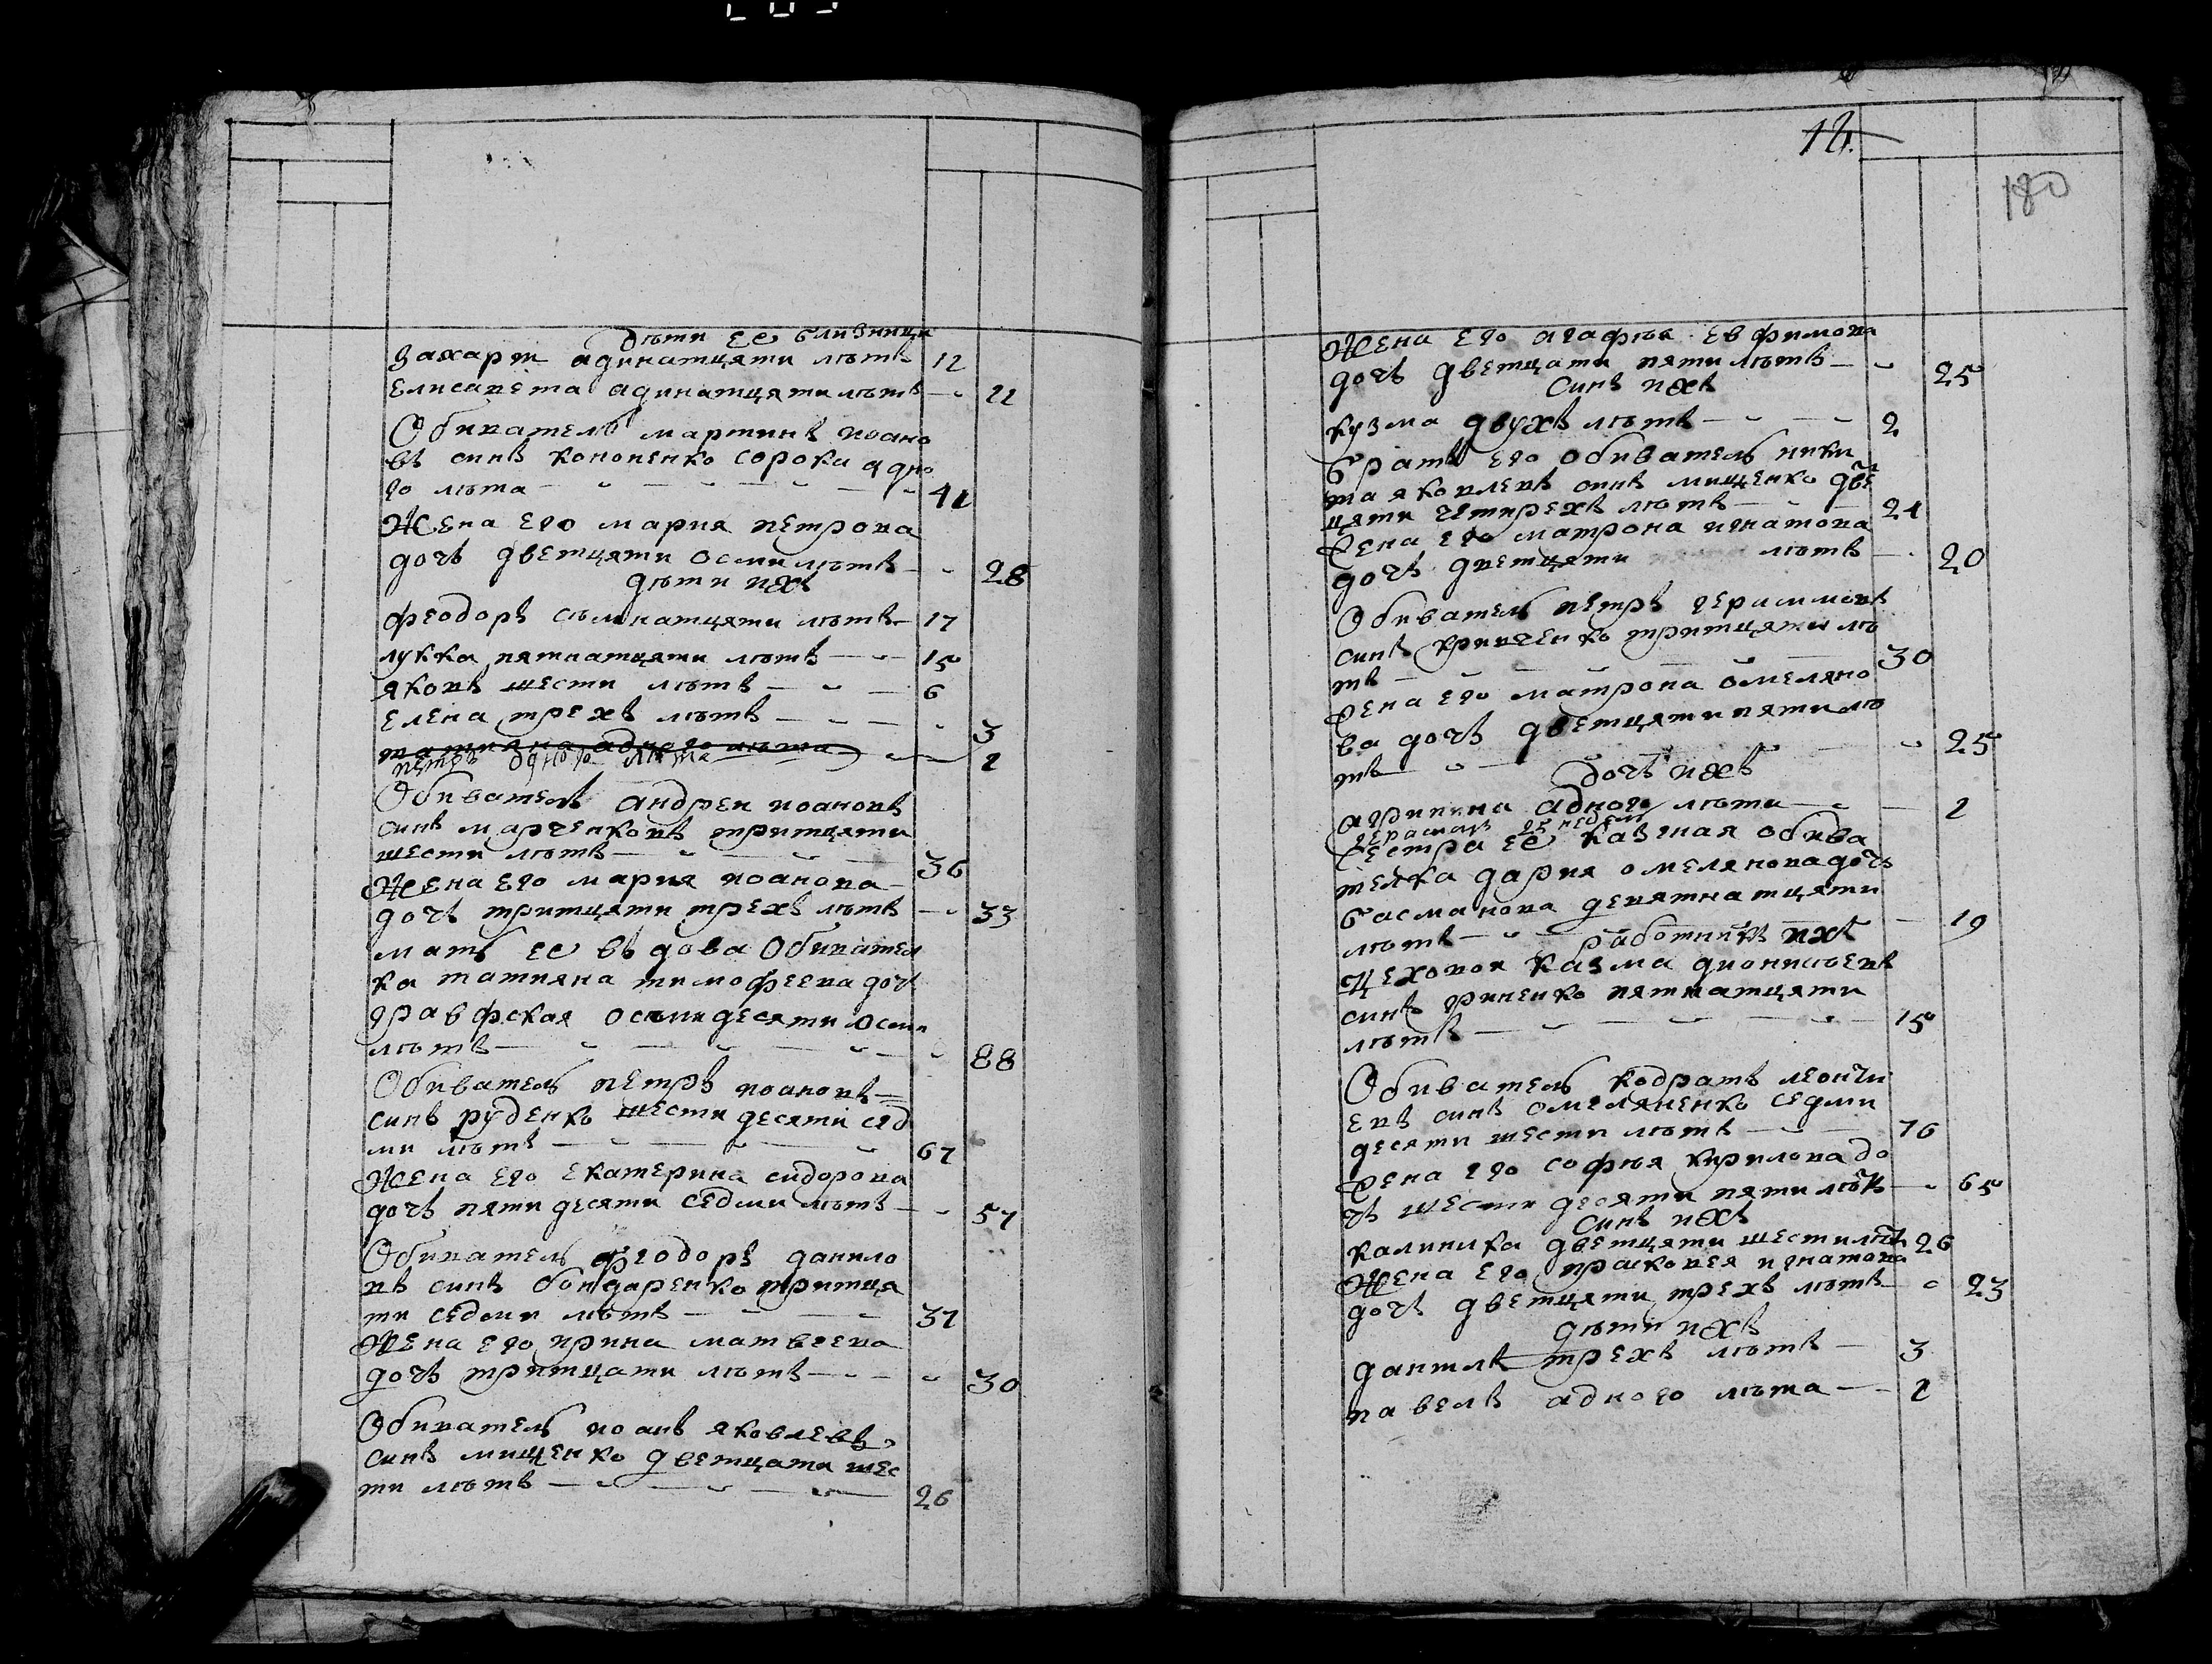 дѣти ее близници
Захарiи адинатцяти лѣтъ 12
Елисавета адинатцяти лѣтъ 11
Обиватель мартинъ иоано
въ синъ кононенко сорока адно
го лѣта 41
Жена его мария петрова
дочъ дветцяти осми лѣтъ 28
дѣти ихъ
феодоръ сѣмнатцяти лѣтъ 17
лукка пятнатцяти лѣтъ 15
яковъ шести лѣтъ 6
елена трехъ лѣтъ 3
татияна адного лѣта 1
петръ одного лѣта
Обиватель андреи иоановъ
синъ марченковъ тритцяти
шести лѣтъ 36
Жена его мария иоанова
дочъ тритцяти трехъ лѣтъ 33
мать ее въдова Обивател
ка татияна тимофеева дочъ
гравфская осмидесяти осми
лѣтъ 88
Обиватель петръ иоановъ
синъ руденко шестидесяти сед
ми лѣтъ 67
Жена его екатерина сидорова
дочъ пятидесяти седми лѣтъ 57
Обиватель феодоръ данило
въ синъ бондаренко тритця
ти седми лѣтъ 37
Жена его ирина матвеева
дочъ тритцати лѣтъ 30
Обиватель иоанъ яковлевъ
синъ мищенко дветцати шес
ти лѣтъ 26
12.
180
Жена его агафѣя евфимова
дочъ дветцати пяти лѣтъ 25
синъ ихъ
кузма двухъ лѣтъ 2
братъ его обиватель ники
та яковлевъ синъ мищенко две
цяти четирехъ лѣтъ 24
Жена его матрона игнатова
дочъ дветцяти лѣтъ 20
Обиватель петръ герасимовъ
синъ кривченко тритцяти лѣ
тъ 30
Жена его матрона омеляно
ва дочъ дветцяти пяти лѣ
тъ 25
дочъ ихъ
агрипина адного лѣта 1
герасимъ недель
сестра ее казачая обива
телка дария омелянова дочъ
басманова девятнатцяти
лѣтъ 19
работникъ ихъ
Цеховои казма дионисѣевъ
синъ гриненко пятнатцяти
лѣтъ 15
Обиватель кодратъ леонти
евъ синъ омеляненко седми
десяти шести лѣтъ 76
Жена его софѣя кирилова до
чъ шестидесяти пяти лѣтъ 65
синъ ихъ
калиника дветцяти шести лѣтъ 26
Жена его прасковея игнатова
дочъ дветцяти трехъ лѣтъ 23
дѣти ихъ
даниилъ трехъ лѣтъ 3
павелъ адного лѣта 1